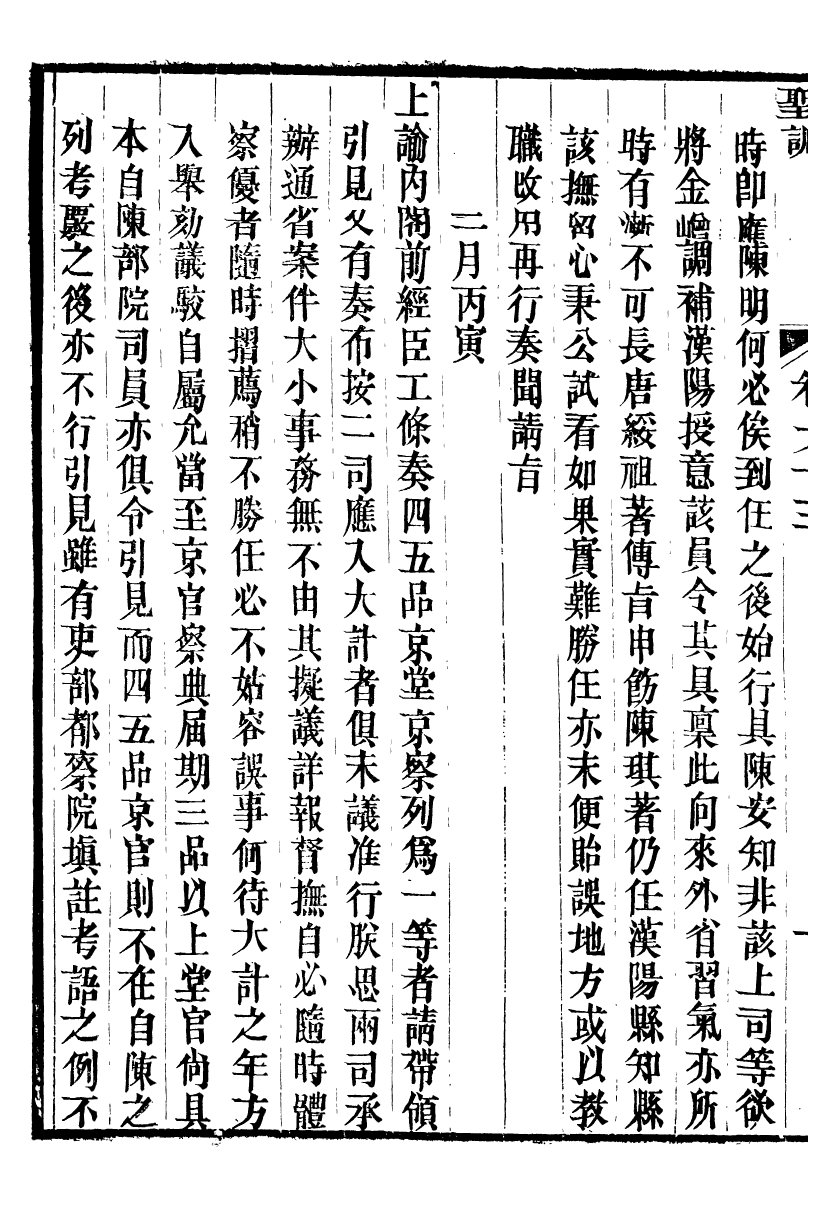 聖訓
卷九十三
時即應陳明何必俟到任之後始行具陳安知非該上司等欲
將金嶒調補漢陽授意該員令其具稟此向來外省習氣亦所
時有漸不可長唐綏祖著傳旨申飭陳琪著仍任漢陽縣知縣
該撫留心秉公試看如果實難勝任亦未便貽誤地方或以教
職改用再行奏聞請旨
二月丙寅
上諭內閣前經臣工條奏四五品京堂京察列爲一等者請帶領
引見又有奏布按二司應入大計者俱未議准行朕思兩司承
辦通省案件大小事務無不由其擬議詳報督撫自必隨時體
察優者隨時摺薦稍不勝任必不姑容誤事何待大計之年方
入舉劾議駁自屬允當至京官察典屆期三品以上堂官尙具
本自陳部院司員亦俱令引見而四五品京官則不在自陳之
列考覈之後亦不行引見雖有吏部都察院塡註考語之例不